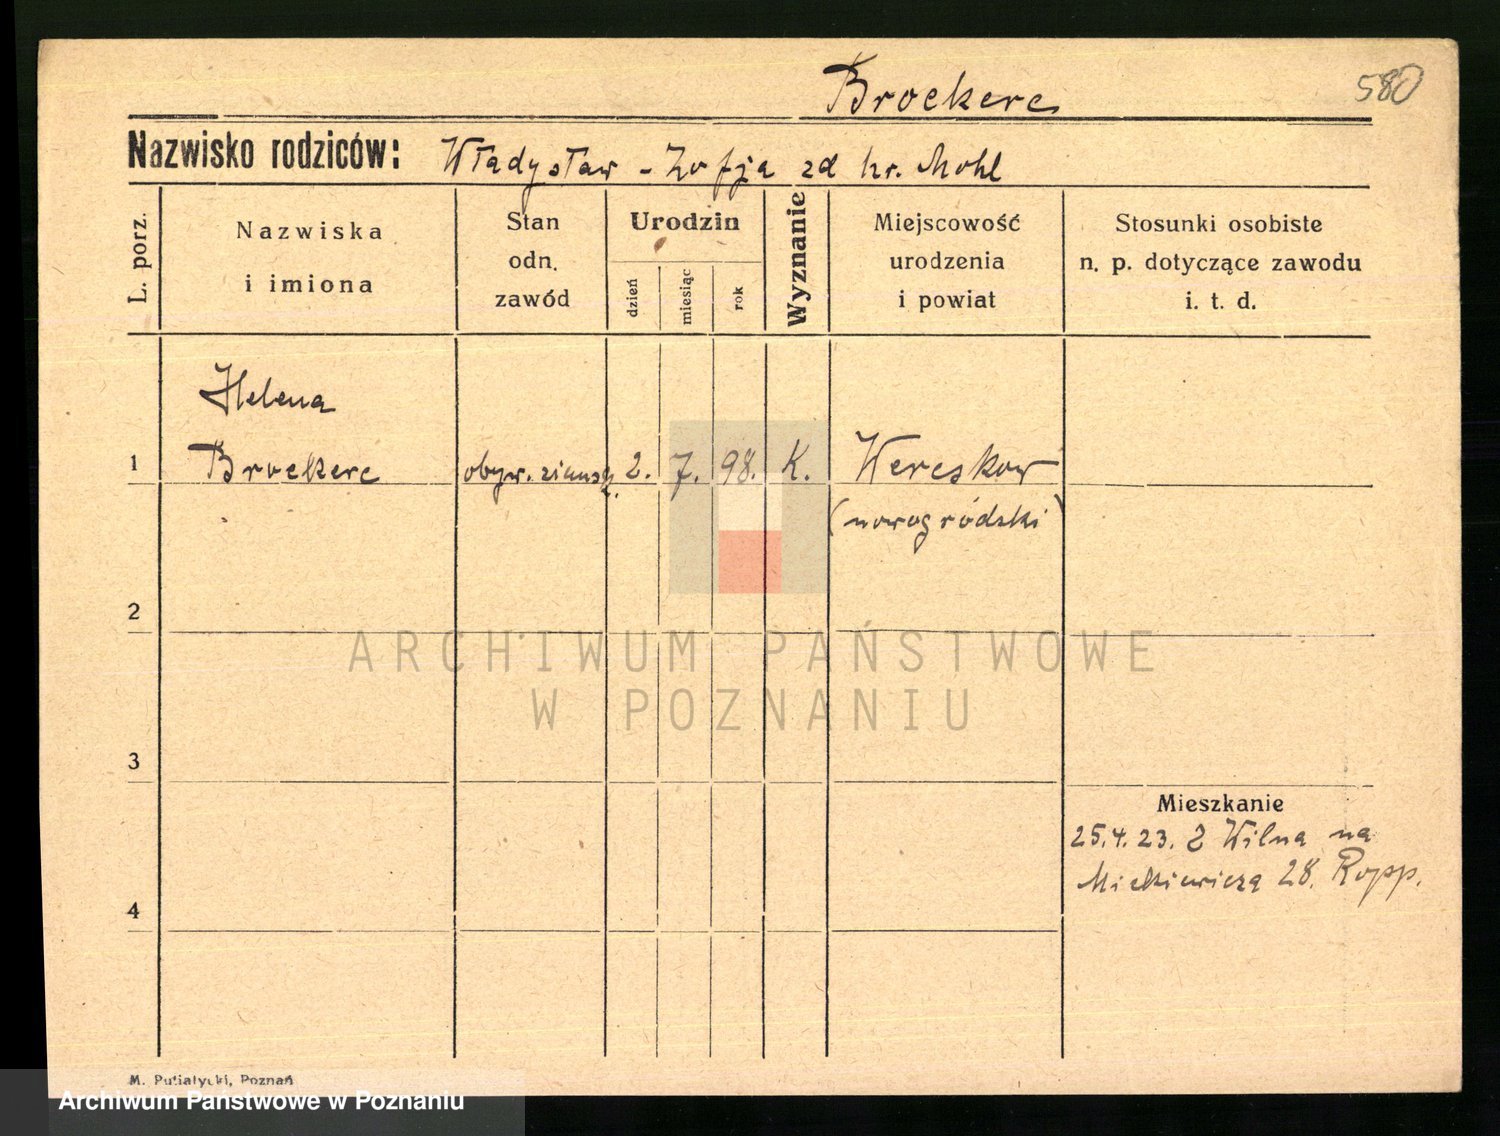 Broekere
580
Nazwisko rodziców: Władysław - Zofja zd hr. Mohl
L. porz.
Nazwiska
i imiona
Stan
odn.
zawód
Urodzin
dzień
miesiąc
rok
Wyznanie
Miejscowość
urodzenia
i powiat
Stosunki osobiste
n. p. dotyczące zawodu
i. t. d.
Helena
1 Broekere obyw. ziemsk. 2. 7. 98. K. Wereskow
(nowogródzki)
2
ARCHIWUM PAŃSTWOWE
W POZNANIU
3
Mieszkanie
25.4.23. Z Wilna na
Mickiewicza 28. Ropp.
4
M. Putiatycki, Poznań
Archiwum Państwowe w Poznaniu